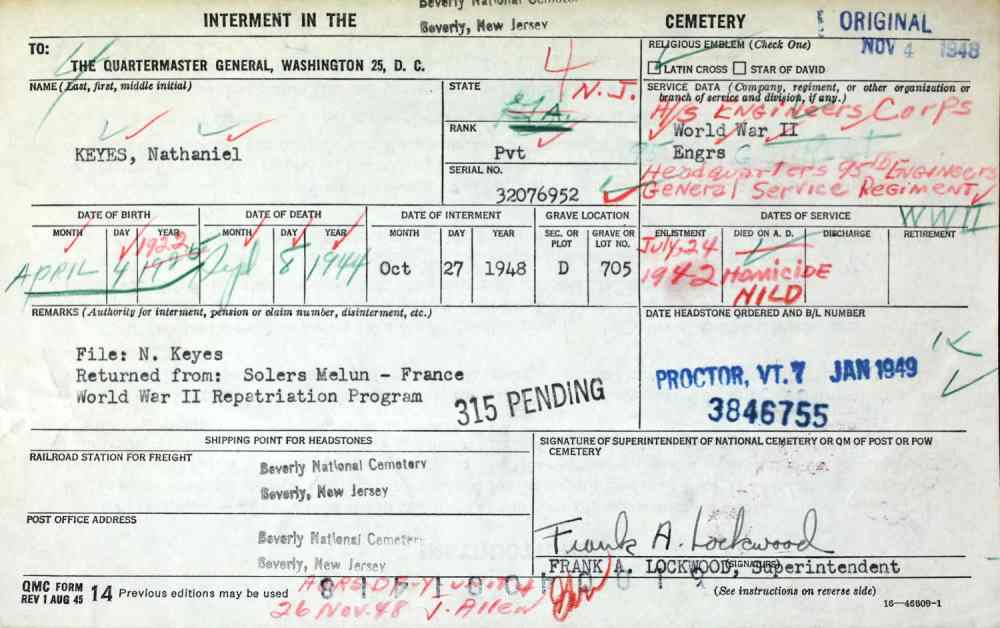 INTERMENT IN THE
Beverly National
Beverly, New Jersey
CEMETERY
ORIGINAL
NOV 4 1948
TO:
THE QUARTERMASTER GENERAL, WASHINGTON 25, D. C.
RELIGIOUS EMBLEM (Check One)
LATIN CROSS
STAR OF DAVID
NAME (Last, first, middle initial)
KEYES, Nathaniel
STATE
4
N.J.
RANK
Pvt
SERIAL NO.
32076952
SERVICE DATA (Company, regiment, or other organization or
branch of service and division, if any.)
H/S ENGINEERS Corps
World War II
Engrs
Headquarters 95th ENGINEERS
GENERAL SERVICE REGIMENT
WWII
DATE OF BIRTH
MONTH DAY YEAR
1922
APRIL 4
DATE OF DEATH
MONTH DAY YEAR
8 1944
DATE OF INTERMENT
MONTH DAY YEAR
Oct 27 1948
GRAVE LOCATION
SEC. OR PLOT
GRAVE OR LOT NO.
D 705
DATES OF SERVICE
ENLISTMENT DIED ON A. D. DISCHARGE RETIREMENT
July, 24
1942 HOMICIDE
NILD
REMARKS (Authority for interment, pension or claim number, disinterment, etc.)
File: N. Keyes
Returned from: Solers Melun - France
World War II Repatriation Program
315 PENDING
DATE HEADSTONE ORDERED AND B/L NUMBER
PROCTOR, VT. 7 JAN 1949
3846755
SHIPPING POINT FOR HEADSTONES
RAILROAD STATION FOR FREIGHT
Beverly National Cemetery
Beverly, New Jersey
POST OFFICE ADDRESS
Beverly National Cemetery
Beverly, New Jersey
SIGNATURE OF SUPERINTENDENT OF NATIONAL CEMETERY OR QM OF POST OR POW
CEMETERY
Frank A. Lockwood
FRANK A. LOCKWOOD, Superintendent
(SIGNATURE)
QMC FORM 14
REV 1 AUG 45
Previous editions may be used
26 Nov. 48 J. Allen
(See instructions on reverse side)
16—46809-1